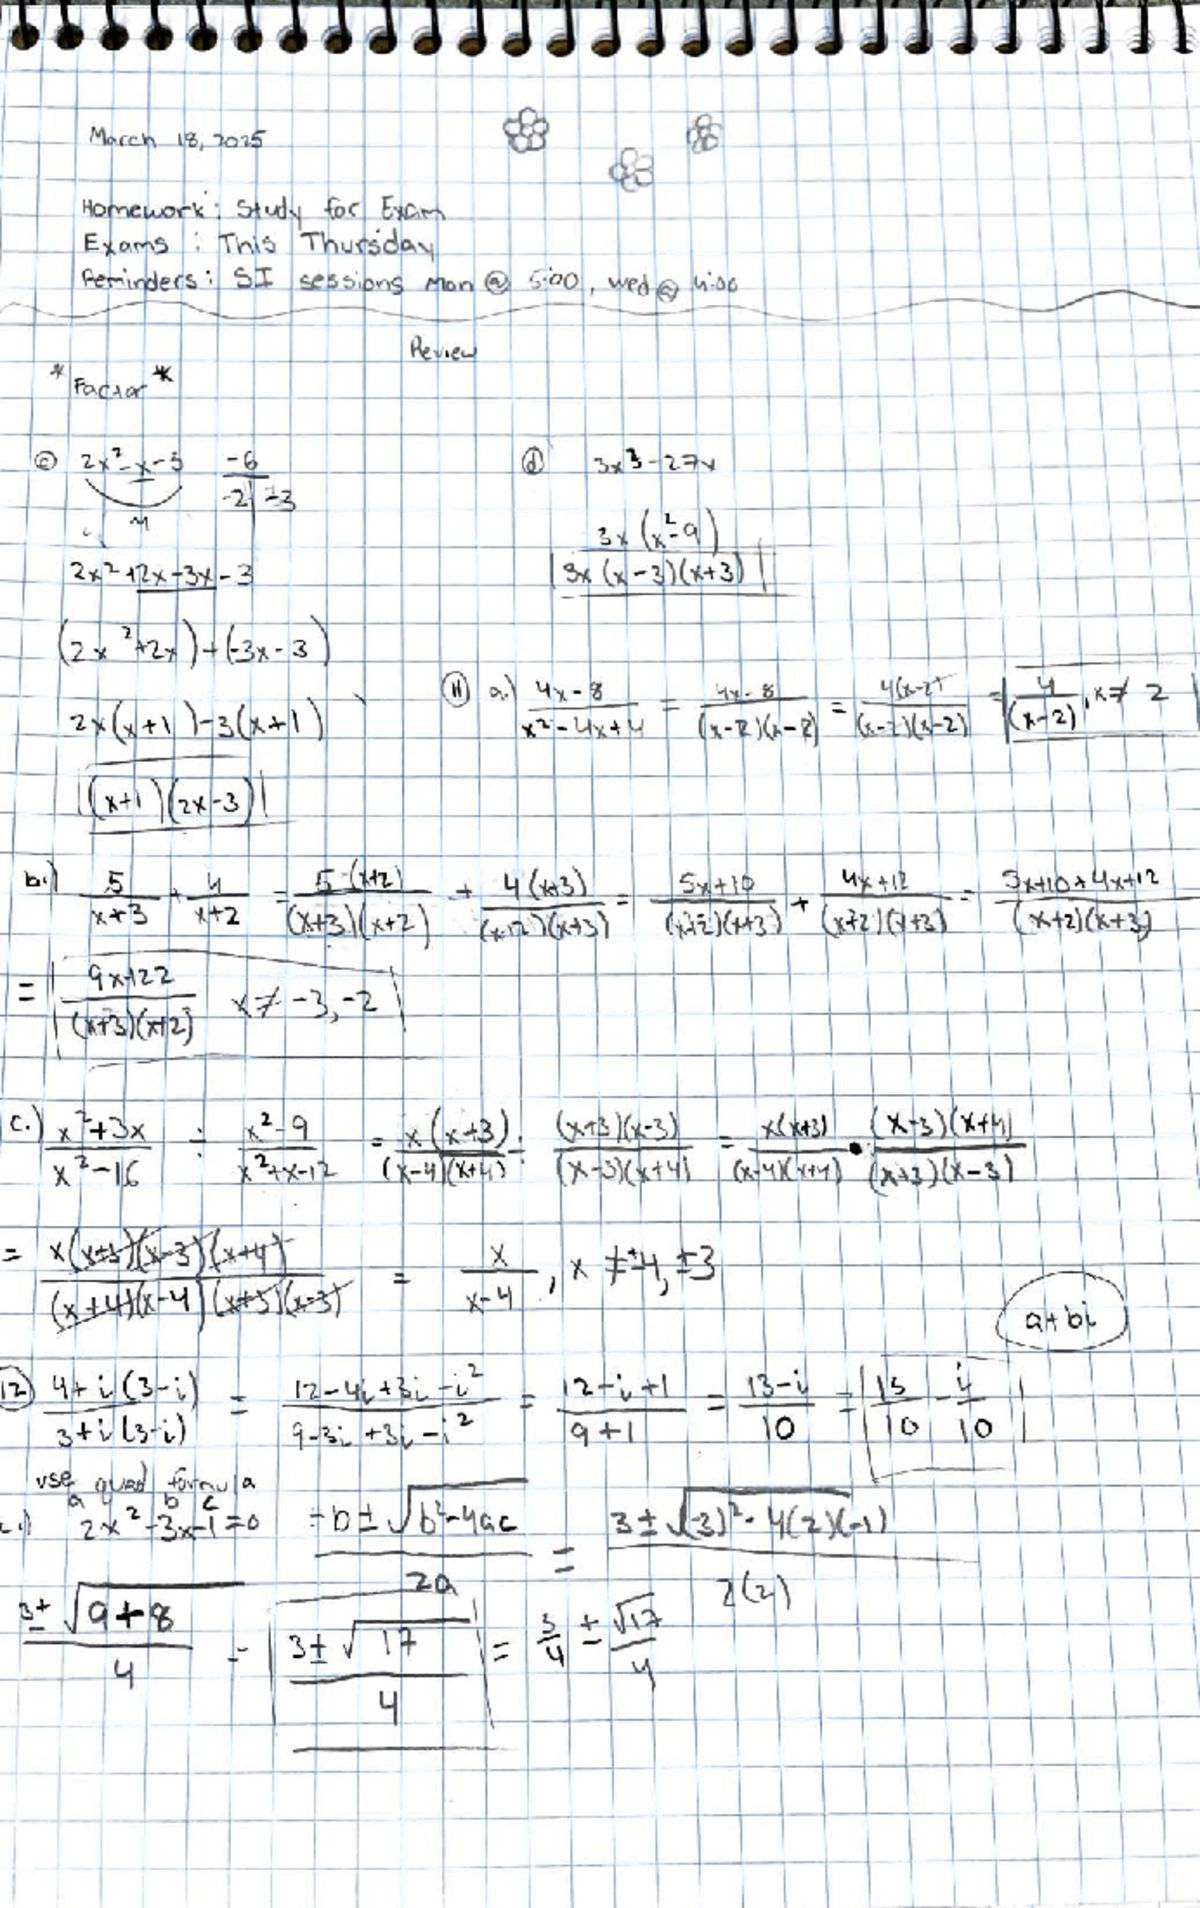 March 18, 2025
Homework: Study for Exam
Exams: This Thursday
Reminders: SI sessions Mon @ 5:00, wed @ 4:00
Review
*Factor*
ⓒ 2x²-x-3 -6
-2 | -3
2x²+2x-3x-3
(2x²+2x)+(-3x-3)
2x(x+1)-3(x+1)
(x+1)(2x-3)
ⓓ 3x³-27x
3x(x²-9)
3x(x-3)(x+3)
⑪ a.) (4x-8)/(x²-4x+4) = (4x-8)/((x-2)(x-2)) = 4(x-2)/((x-2)(x-2)) = 4/(x-2), x≠2
b.) 5/(x+3) + 4/(x+2) = 5(x+2)/((x+3)(x+2)) + 4(x+3)/((x+2)(x+3)) = (5x+10)/((x+2)(x+3)) + (4x+12)/((x+2)(x+3)) = (5x+10+4x+12)/((x+2)(x+3))
= (9x+22)/((x+3)(x+2)) x≠-3,-2
c.) (x²+3x)/(x²-16) ÷ (x²-9)/(x²+x-12) = x(x+3)/((x-4)(x+4)) ÷ (x+3)(x-3)/((x-3)(x+4)) = x(x+3)/((x-4)(x+4)) • (x-3)(x+4)/((x+3)(x-3))
= x(x+3)(x-3)(x+4)/((x+4)(x-4)(x+3)(x-3)) = x/(x-4), x≠±4,±3
a+bi
⑫ (4+i(3-i))/(3+i(3-i)) = (12-4i+3i-i²)/(9-3i+3i-i²) = (12-i+1)/(9+1) = (13-i)/10 = 13/10 - i/10
use quad formula
a b c
2x²-3x-1=0 (-b±√(b²-4ac))/2a = (3±√((-3)²-4(2)(-1)))/2(2)
(3±√(9+8))/4 = (3±√17)/4 = 3/4 ± √17/4